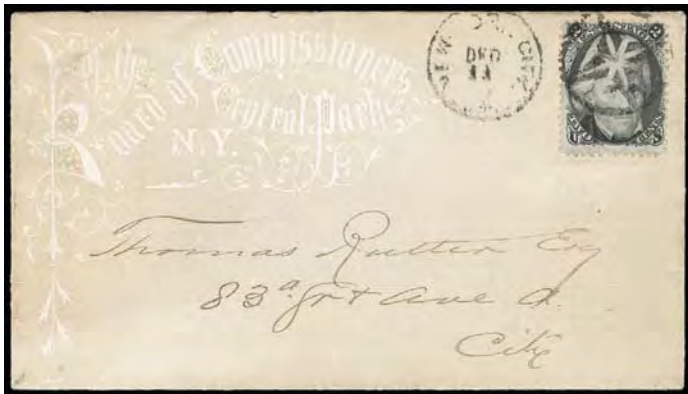 of the
Board of Commissioners
Central Park
N.Y.
NEW YORK CITY
DEC
11
2 2
Thomas Rutter Esq
83d St & Ave A.
City